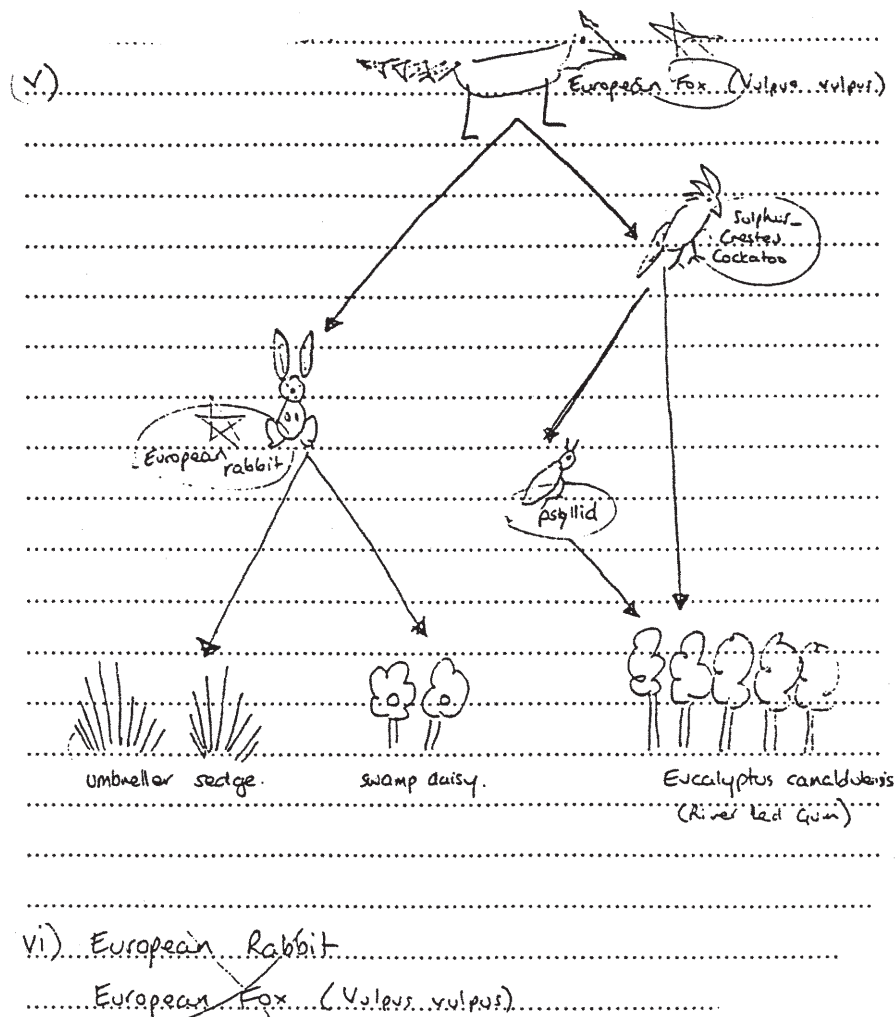 (v)
European Fox (Vulpus vulpus)
Sulphus-
Crested
Cockatoo
European rabbit
psyllid
umbreller sedge.
swamp daisy.
Eucalyptus camaldulensis
(River Red Gum)
vi) European Rabbit
European Fox (Vulpus vulpus)